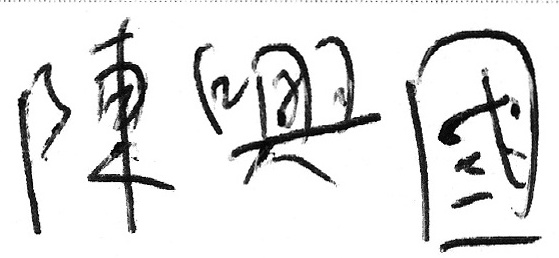 陳興國